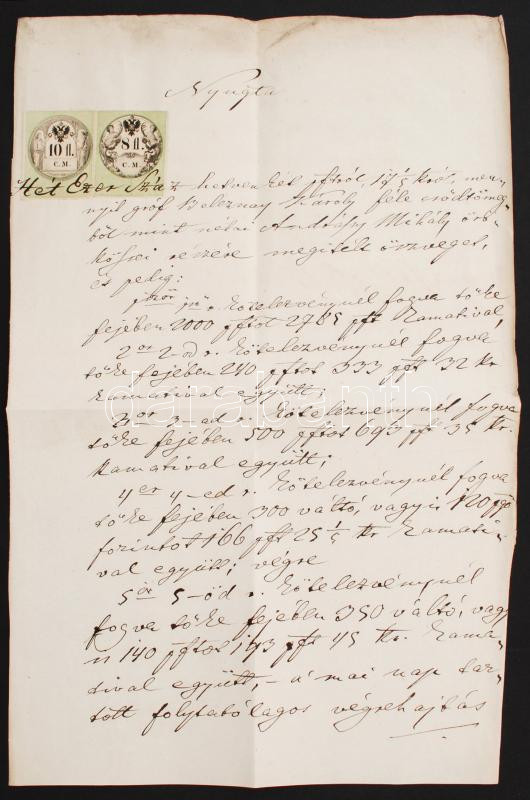 Nyugta
10 fl. C.M. 8 fl. C.M.
Hét Ezer Száz hetven két pftról, 17 1/5 król, men-
nyit gróf Beleznay Károly féle csődtömeg-
ből mint néhai Andrássy Mihály örö-
kösei részére megitélt összveget,
és pedig:
1ször r. kötelezvénynél fogva tőke
fejében 2000 pftot 2785 pft kamatival,
2or 2-od r. kötelezvénynél fogva
tőke fejében 240 pftot 333 pft 32 kr
kamatival együtt;
3or 3-ad r. kötelezvénynél fogva
tőke fejében 500 pftot 693 pft 35 kr.
kamatival együtt;
4er 4-ed r. kötelezvénynél fogva
tőke fejében 300 váltó, vagyis 120 pengő
forintot 166 pft 25 1/5 kr kamati-
val együtt; végre
5ör 5-öd r. kötelezvénynél
fogva tőke fejében 350 váltó, vagy
is 140 pftot 193 pft 45 kr. kama-
tival együtt, – a' mai nap tar-
tott folytatólagos végrehajtás
darabanth